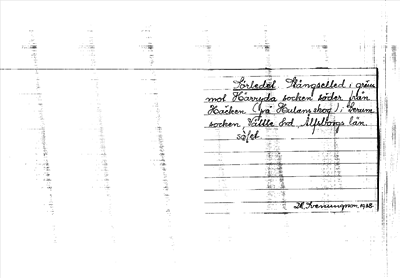 Sörledet Stängselled i gräns
mot Härryda socken söder från
Häcken (på Hulans skog) i Lerum
socken Vättle hd. Älfsborgs län.
sö/et
D. Svenungsson 1928